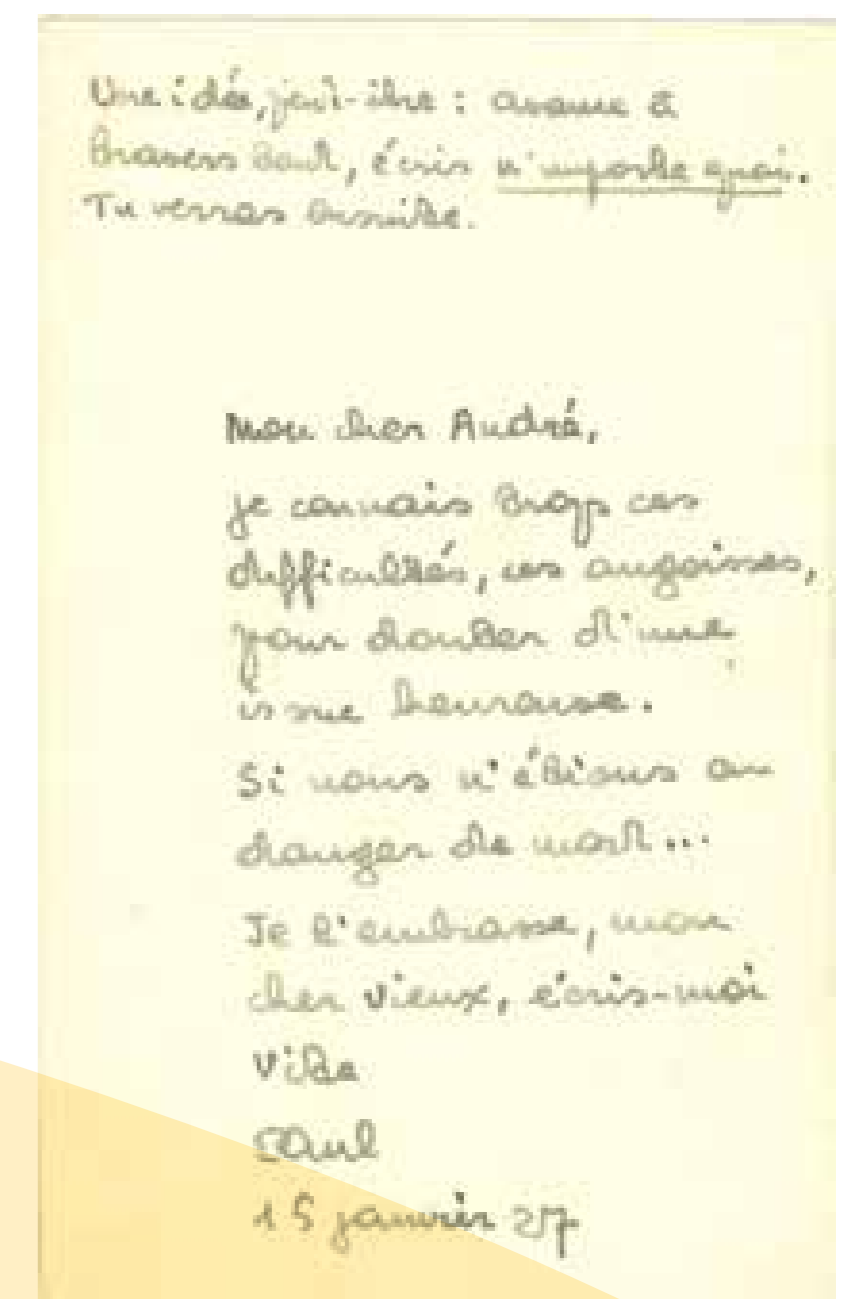 Une idée, peut-être : avance à
travers tout, écris n'importe quoi.
Tu verras ensuite.
Mon cher André,
je connais trop ces
difficultés, ces angoisses,
pour douter d'une
issue heureuse.
Si nous n'étions en
danger de mort...
Je t'embrasse, mon
cher vieux, écris-moi
vite
Paul
15 janvier 27